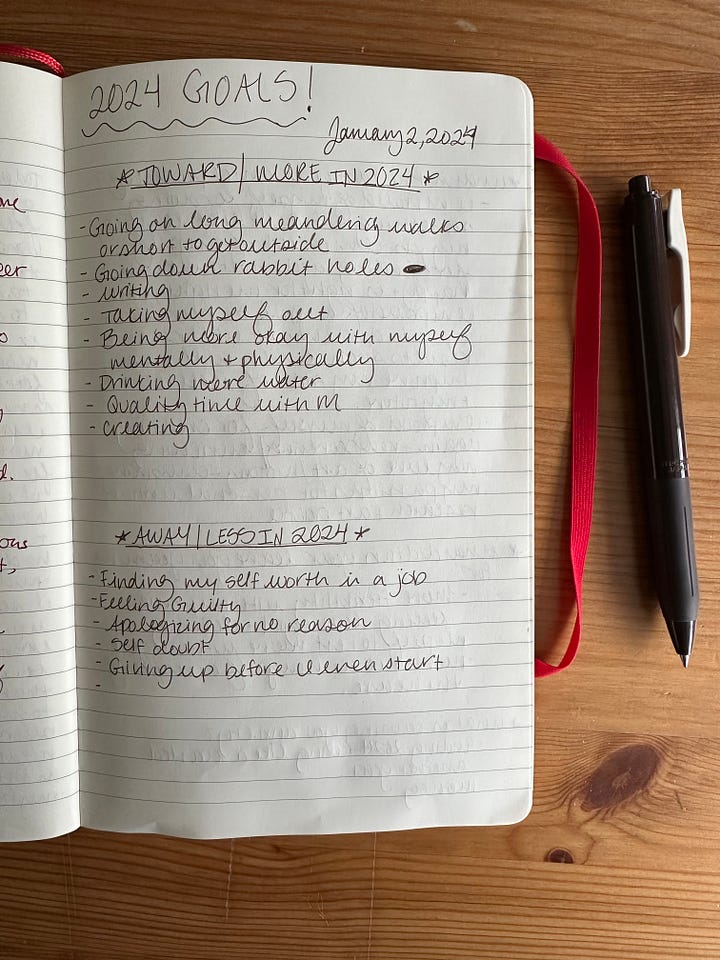 2024 GOALS!
January 2, 2024
* TOWARD/MORE IN 2024 *
- Going on long meandering walks
or short to get outside
- Going down rabbit holes
- writing
- Taking myself out
- Being more okay with myself
mentally + physically
- Drinking more water
- Quality time with M
- creating
* AWAY/LESS IN 2024 *
- Finding my self worth in a job
- Feeling Guilty
- Apologizing for no reason
- Self doubt
- Giving up before I even start
-